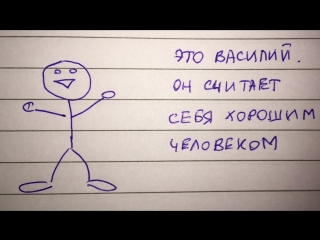 ЭТО ВАСИЛИЙ.
ОН СЧИТАЕТ
СЕБЯ ХОРОШИМ
ЧЕЛОВЕКОМ